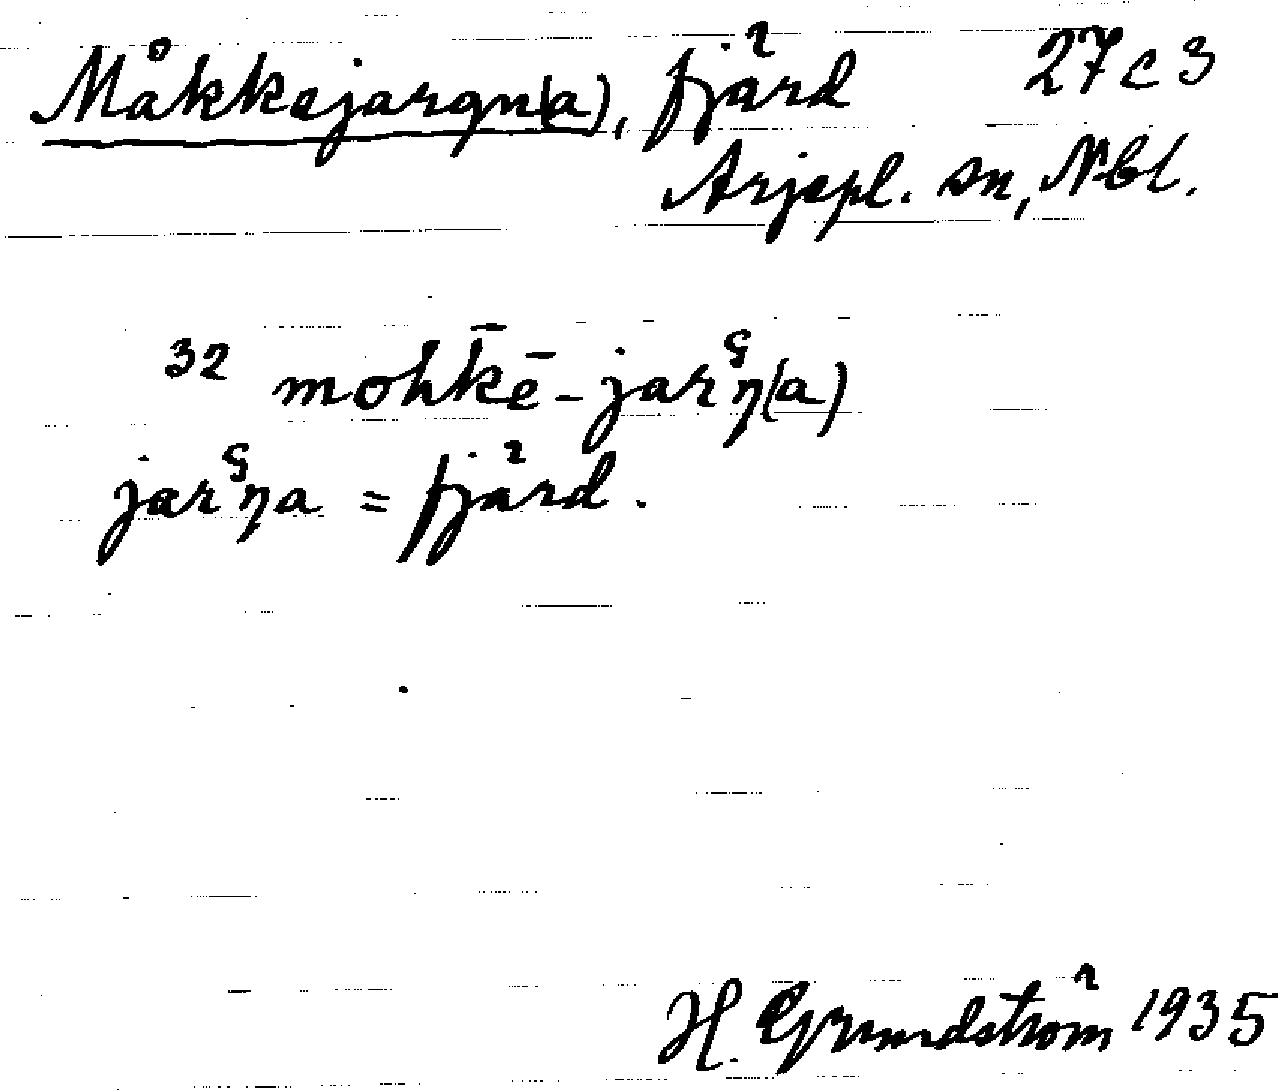 Måkkejarqn(a), fjärd 27c3
Arjepl. sn, Nbl.
32 mohkē-jarᶓŋ(a)
jarᶓŋa = fjärd.
H. Grundström 1935